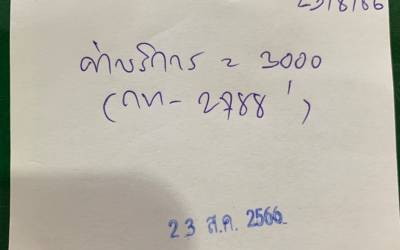 23/8/66
ค่าบริการ = 3000
(กท - 2788')
23 ส.ค. 2566